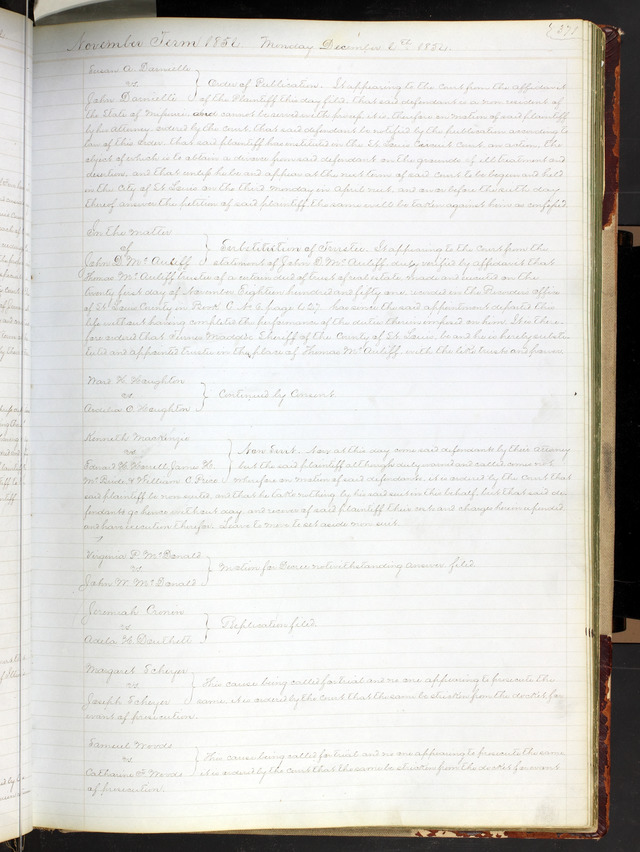 378
November Term 1854. Monday December 4th 1854.
Susan A. Darnielle
vs } Order of Publication. It appearing to the Court from the affidavit
John Darnielle of the Plaintiff this day filed, that said defendant is a non resident of
the State of Missouri and cannot be served with process it is therefore on motion of said plaintiff
by his Attorney ordered by the court that said defendant be notified by the publication according to
law of this Order that said plaintiff has instituted in the St Louis Circuit Court an action the
object of which is to obtain a divorce from said defendant on the grounds of ill treatment and
desertion, and that unless he be and appear at the next term of said court to be begun and held
in the City of St Louis on the third Monday in April next, and on or before the sixth day
thereof answer the petition of said plaintiff the same will be taken against him as confessed.
In the matter
of } Substitution of Trustee. It appearing to the Court from the
John D. McAuliff statement of John D. McAuliff duly verified by affidavit that
Thomas McAuliff trustee of a certain deed of trust of real estate made and executed on the
twenty first day of November Eighteen hundred and fifty one, recorded in the Recorders Office
of St Louis County in Book No. 6 page 627 has since the said appointment departed this
life without having completed the performance of the duties therein imposed on him. It is there-
fore ordered that Sheriff of the County of St Louis, be and he is hereby substi
tuted and appointed trustee in the place of Thomas McAuliff with the like trusts and powers
Ward H. Haughton
vs } Continued by Consent.
Aurelia C. Haughton
Kenneth MacKenzie
vs } Non Suit. Now at this day come said defendants by their Attorney
Edward W. James H. but the said plaintiff although duly warned and called comes not
McBride & William C. Price wherefore on motion of said defendants it is ordered by the Court that
said plaintiff be non suited, and that he take nothing by his said suit in this behalf, but that said de-
fendants go hence without day, and recover of said plaintiff their costs and charges herein expended
and have execution therefor. Leave to move to set aside non suit.
Virginia P. McDonald
vs } Motion for Decree notwithstanding answer filed
John W. McDonald
Jeremiah Cronin
vs } Replication filed
Adela H.
Margaret Scheyer
vs } This cause being called for trial and no one appearing to prosecute the
Joseph Scheyer same, it is ordered by the Court that the same be stricken from the docket for
want of prosecution.
Samuel Woods
vs } This cause being called for trial and no one appearing to prosecute the same
Catharine F. Woods it is ordered by the Court that the same be stricken from the docket for want
of prosecution.